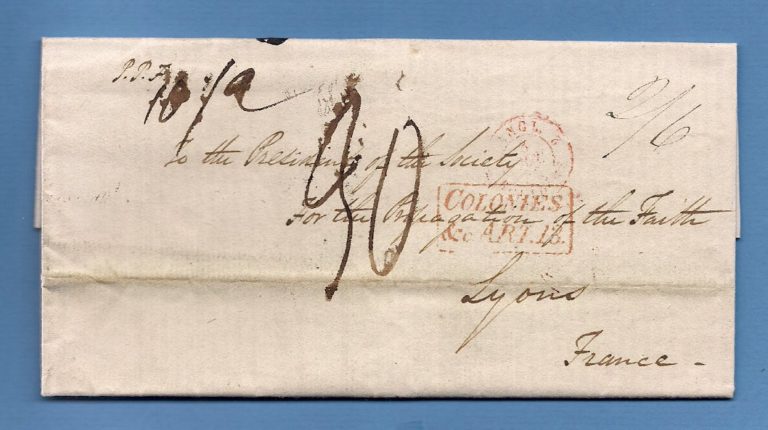 P.P.F.
10/2
2/6
30
To the President of the Society
For the Propagation of the Faith
Lyons
France -
COLONIES
&c ART.13.